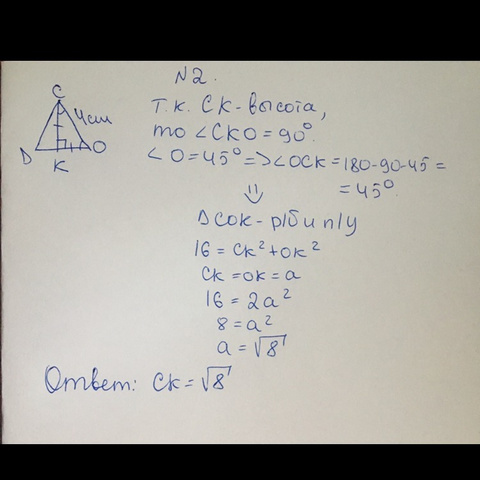 N2.
C
4см
D
O
K
Т.к. СК-высота,
то ∠CKO = 90°.
∠O = 45° => ∠OCK = 180-90-45 =
= 45°
=>
ΔCOK - р/б и п/у
16 = CK² + OK²
CK = OK = a
16 = 2a²
8 = a²
a = √8
Ответ: CK = √8